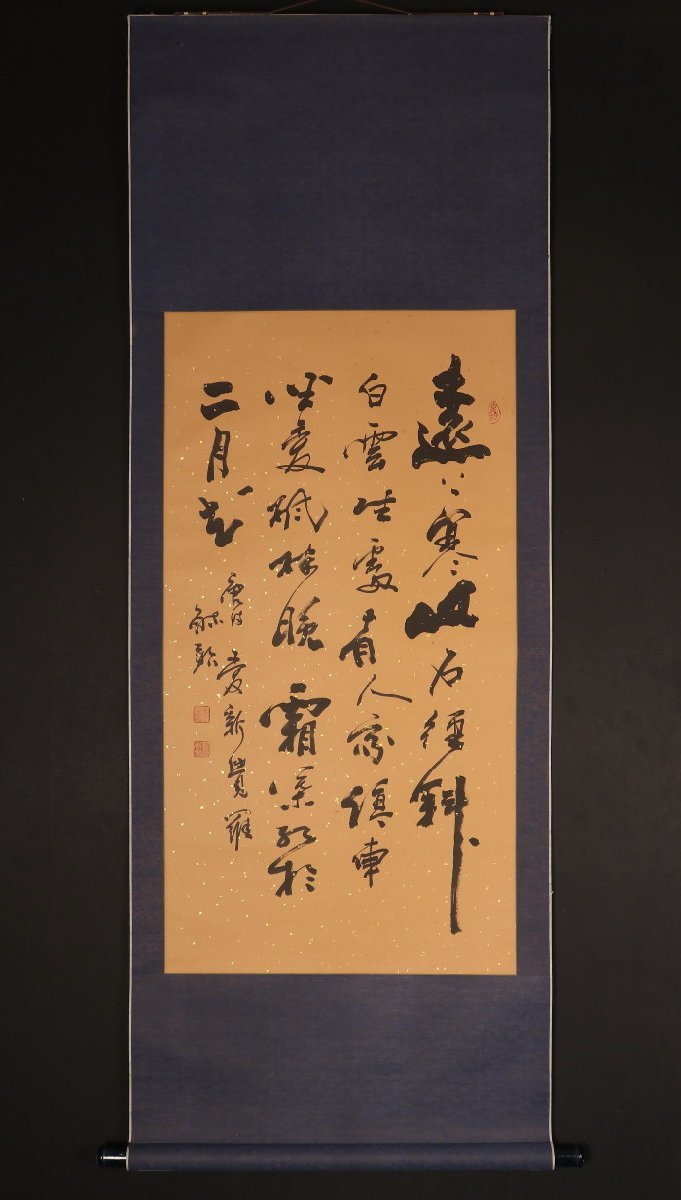 遠上寒山石徑斜
白雲生處有人家停車
坐愛楓林晚霜葉紅於
二月花
愛新覺羅